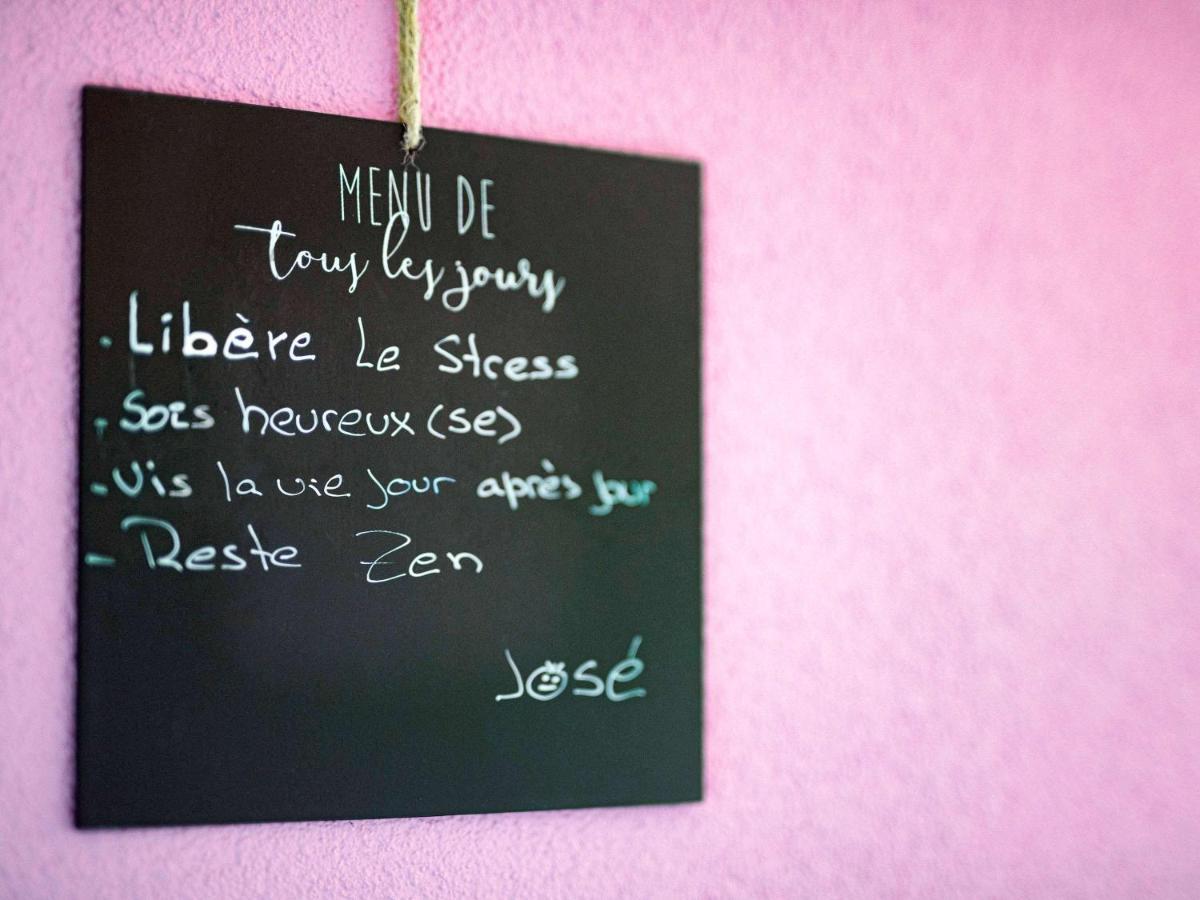 MENU DE
tous les jours
. Libère Le Stress
. Sois heureux (se)
- Vis la vie jour après jour
- Reste Zen
José